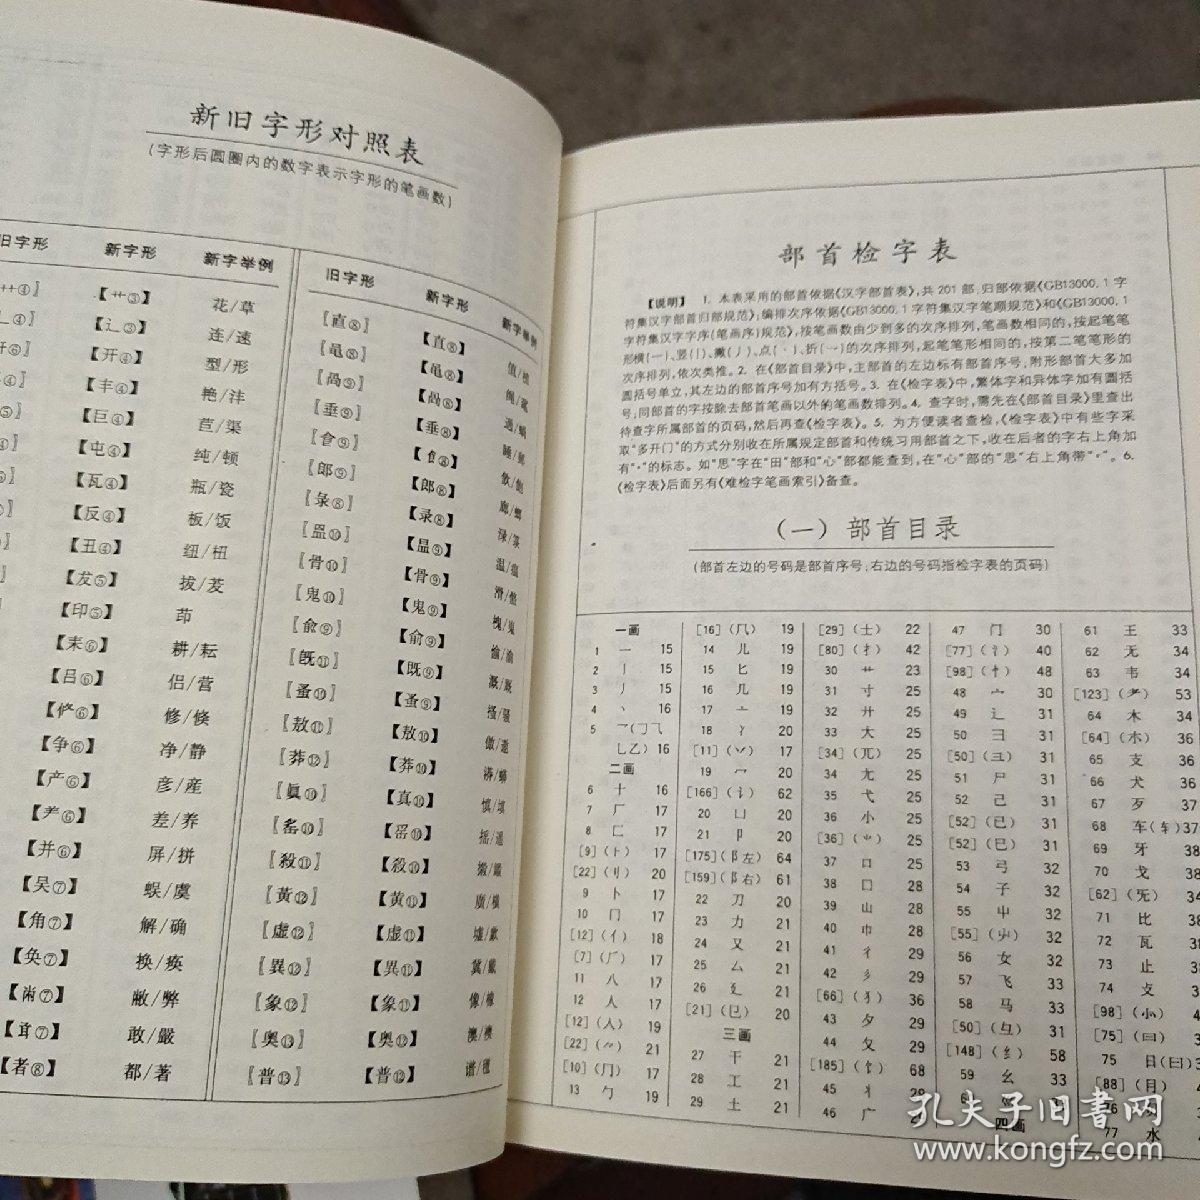 新旧字形对照表
(字形后圆圈内的数字表示字形的笔画数)
旧字形 新字形 新字举例
【艹③】 花/草
【辶③】 连/速
【开④】 型/形
【丰④】 艳/沣
【巨④】 苣/渠
【屯④】 纯/顿
【瓦④】 瓶/瓷
【反④】 板/饭
【丑④】 纽/杻
【发⑤】 拔/茇
【印⑤】 茚
【耒⑥】 耕/耘
【吕⑥】 侣/营
【俢⑥】 修/倏
【争⑥】 净/静
【产⑥】 彦/産
【⺶⑥】 差/养
【并⑥】 屏/拼
【吴⑦】 蜈/虞
【角⑦】 解/确
【奂⑦】 换/痪
【㡀⑦】 敝/弊
【耳⑦】 敢/嚴
【者⑧】 都/著
旧字形 新字形 新字举例
〖直⑧〗 【直⑧】 值/植
〖黾⑧〗 【黾⑧】
〖咼⑨〗 【咼⑧】 過/蝸
〖垂⑨〗 【垂⑧】 睡/郵
〖郎⑨〗 【郎⑧】 廊/螂
〖彔⑧〗 【录⑧】 渌/箓
〖昷⑩〗 【昷⑨】 温/瘟
〖骨⑩〗 【骨⑨】 滑/骼
〖鬼⑩〗 【鬼⑨】 槐/嵬
〖兪⑨〗 【俞⑨】 偷/渝
〖旣⑪〗 【既⑨】 溉/厩
〖蚤⑩〗 【蚤⑨】 搔/骚
〖敖⑪〗 【敖⑩】 傲/遨
〖莽⑫〗 【莽⑩】 漭/蟒
〖眞⑩〗 【真⑩】 慎/填
〖䍃⑩〗 【䍃⑩】 摇/遥
〖殺⑪〗 【殺⑩】
〖黃⑫〗 【黄⑪】 廣/横
〖虚⑫〗 【虚⑪】 墟/歔
〖異⑫〗 【異⑪】 冀/戴
〖象⑫〗 【象⑪】 像/橡
〖奥⑬〗 【奥⑫】 澳/襖
〖普⑬〗 【普⑫】 谱/氆
部首检字表
【说明】 1. 本表采用的部首依据《汉字部首表》,共 201 部;归部依据《GB13000.1 字
符集汉字部首归部规范》;编排次序依据《GB13000.1 字符集汉字笔顺规范》和《GB13000.1
字符集汉字字序(笔画序)规范》,按笔画数由少到多的次序排列,笔画数相同的,按起笔笔
形横(一)、竖(丨)、撇(丿)、点(丶)、折(乛)的次序排列,起笔笔形相同的,按第二笔笔形的
次序排列,依次类推。2. 在《部首目录》中,主部首的左边标有部首序号;附形部首大多加
圆括号单立,其左边的部首序号加有方括号。3. 在《检字表》中,繁体字和异体字加有圆括
号;同部首的字按除去部首笔画以外的笔画数排列。4. 查字时,需先在《部首目录》里查出
待查字所属部首的页码,然后再查《检字表》。5. 为方便读者查检,《检字表》中有些字采
取“多开门”的方式分别收在所属规定部首和传统习用部首之下,收在后者的字右上角加
有“·”的标志。如“思”字在“田”部和“心”部都能查到,在“心”部的“思”右上角带“·”。6.
《检字表》后面另有《难检字笔画索引》备查。
(一) 部首目录
(部首左边的号码是部首序号;右边的号码指检字表的页码)
一画
1 一 15
2 丨 15
3 丿 15
4 丶 16
5 乛(𠃌⺄
乚乙) 16
二画
6 十 16
7 厂 17
8 匚 17
[9](⺊) 17
[22](刂) 20
9 卜 17
10 冂 17
[12](亻) 18
[7](𠂆) 17
11 八 17
12 人 17
[12](入) 19
[22](⺈) 21
[10](⺆) 17
13 勹 19
[16](几) 19
14 儿 19
15 匕 19
16 几 19
17 亠 19
18 冫 19
[11](丷) 17
19 冖 20
[166](讠) 62
20 凵 20
21 卩 20
[175](阝左) 64
[159](阝右) 61
22 刀 20
23 力 21
24 又 21
25 厶 21
26 廴 21
[21](㔾) 20
三画
27 干 21
28 工 21
29 土 21
[29](士) 22
[80](扌) 42
30 艹 23
31 寸 25
32 廾 25
33 大 25
[34](兀) 25
34 尢 25
35 弋 25
36 小 25
[36](⺌) 25
37 口 25
38 囗 28
39 山 28
40 巾 28
41 彳 29
42 彡 29
[66](犭) 36
43 夕 29
44 夂 29
[185](饣) 68
45 丬 29
46 广 29
47 门 30
[77](氵) 40
[98](忄) 48
48 宀 30
49 辶 31
50 彐 31
[50](彑) 31
51 尸 31
52 己 31
[52](已) 31
[52](巳) 31
53 弓 32
54 子 32
55 屮 32
[55](屮) 32
56 女 32
57 飞 33
58 马 33
[50](彑) 31
[148](纟) 58
59 幺 33
四画
61 王 33
62 无 34
63 韦 34
[123](耂) 53
64 木 34
[64](朩) 36
65 支 36
66 犬 36
67 歹 37
68 车(𰹲)37
69 牙 38
70 戈 38
[62](旡)
71 比 38
72 瓦
73 止
74 攴
[98](⺗)
[75](曰)
75 日(曰)
[88](月)
77 水
孔夫子旧书网
www.kongfz.com